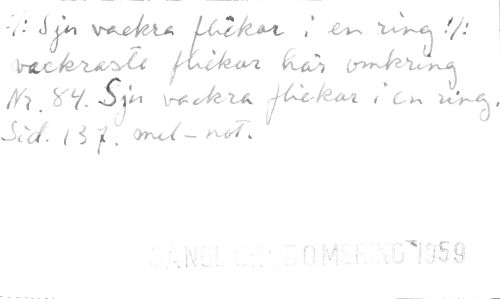 :/: Sju vackra flickor i en ring :/:
vackraste flickor här omkring
Nr. 84. Sju vackra flickor i en ring.
Sid. 137. mel-not.
1959